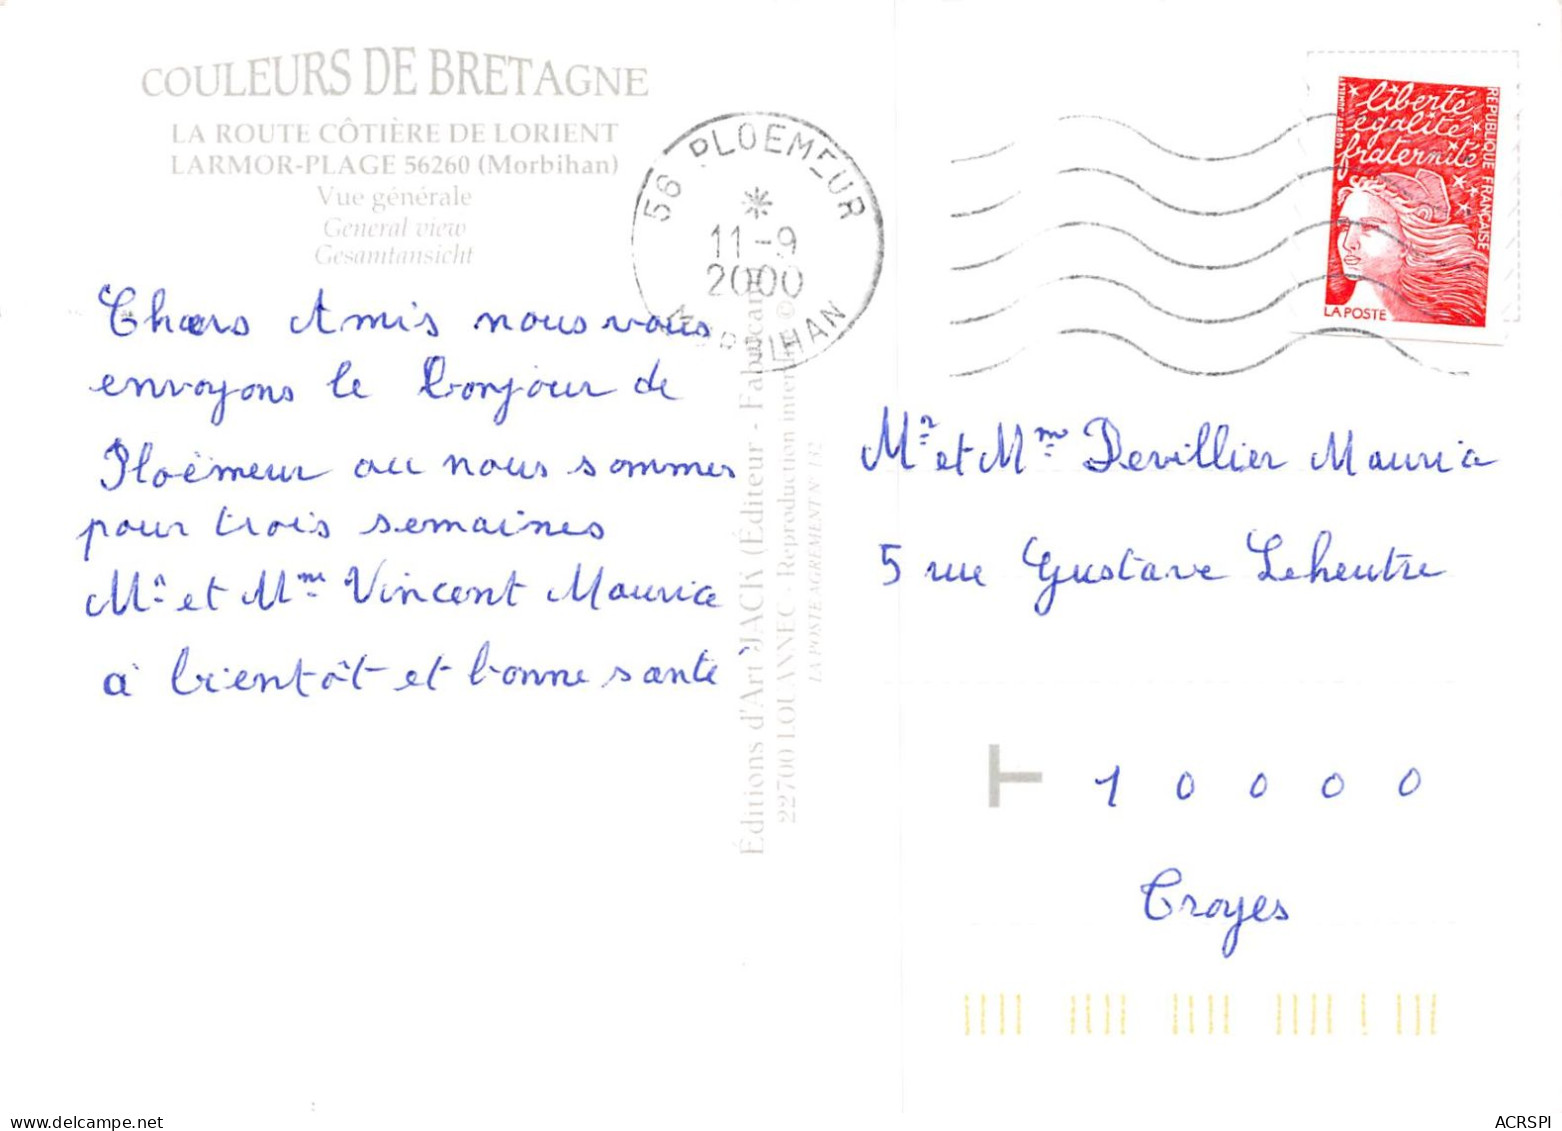 COULEURS DE BRETAGNE
LA ROUTE CÔTIÈRE DE LORIENT
LARMOR-PLAGE 56260 (Morbihan)
Vue générale
General view
Gesamtansicht
56 PLOEMEUR
11-9
2000
MORBIHAN
liberté
égalité
fraternité
RÉPUBLIQUE FRANÇAISE
LA POSTE
Chers Amis nous vous
envoyons le bonjour de
Ploëmeur ou nous sommes
pour trois semaines
Mr et Mme Vincent Maurice
a bientôt et bonne santé
Éditions d'Art JACK (Éditeur - Fabricant)
22700 LOUANNEC - Reproduction interdite ©
LA POSTE AGREMENT N° 132
Mr et Mme Devillier Mauric
5 rue Gustave Leheutre
T 1 0 0 0 0
Troyes
ACRSPI